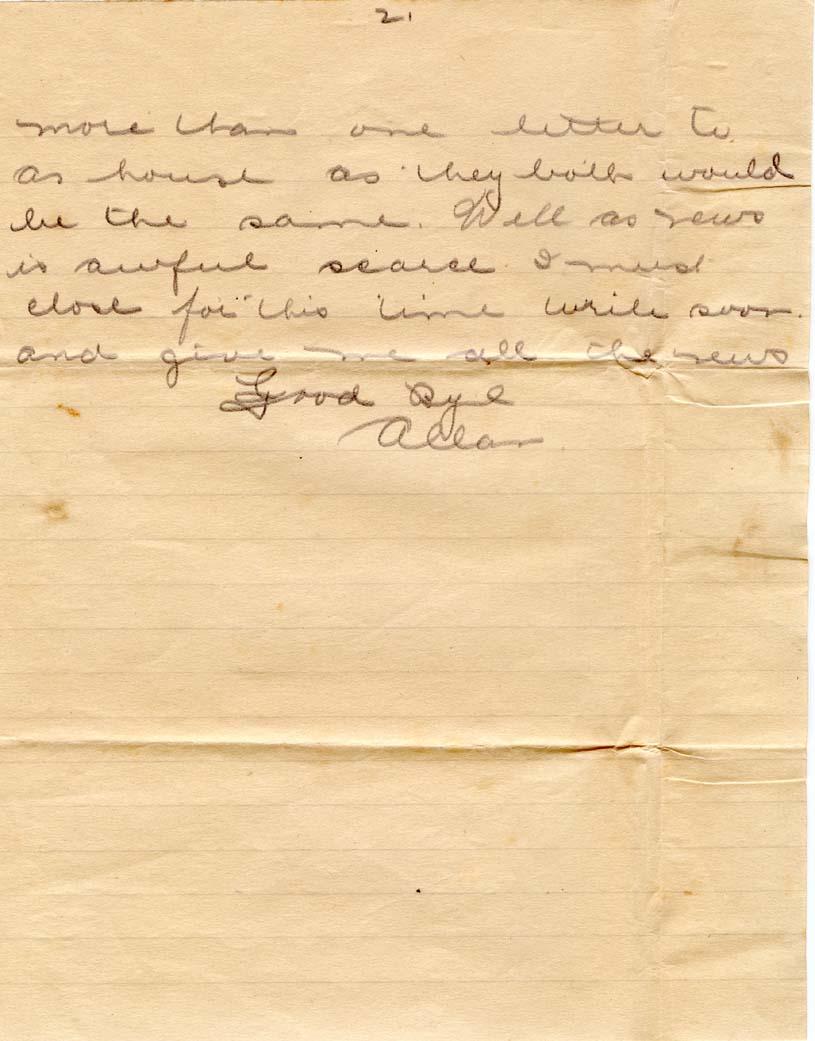 2.
more than one letter to
as house as they both would
be the same. Well as news
is awful scarce I must
close for this time write soon.
and give me all the news
Good Bye
Allan